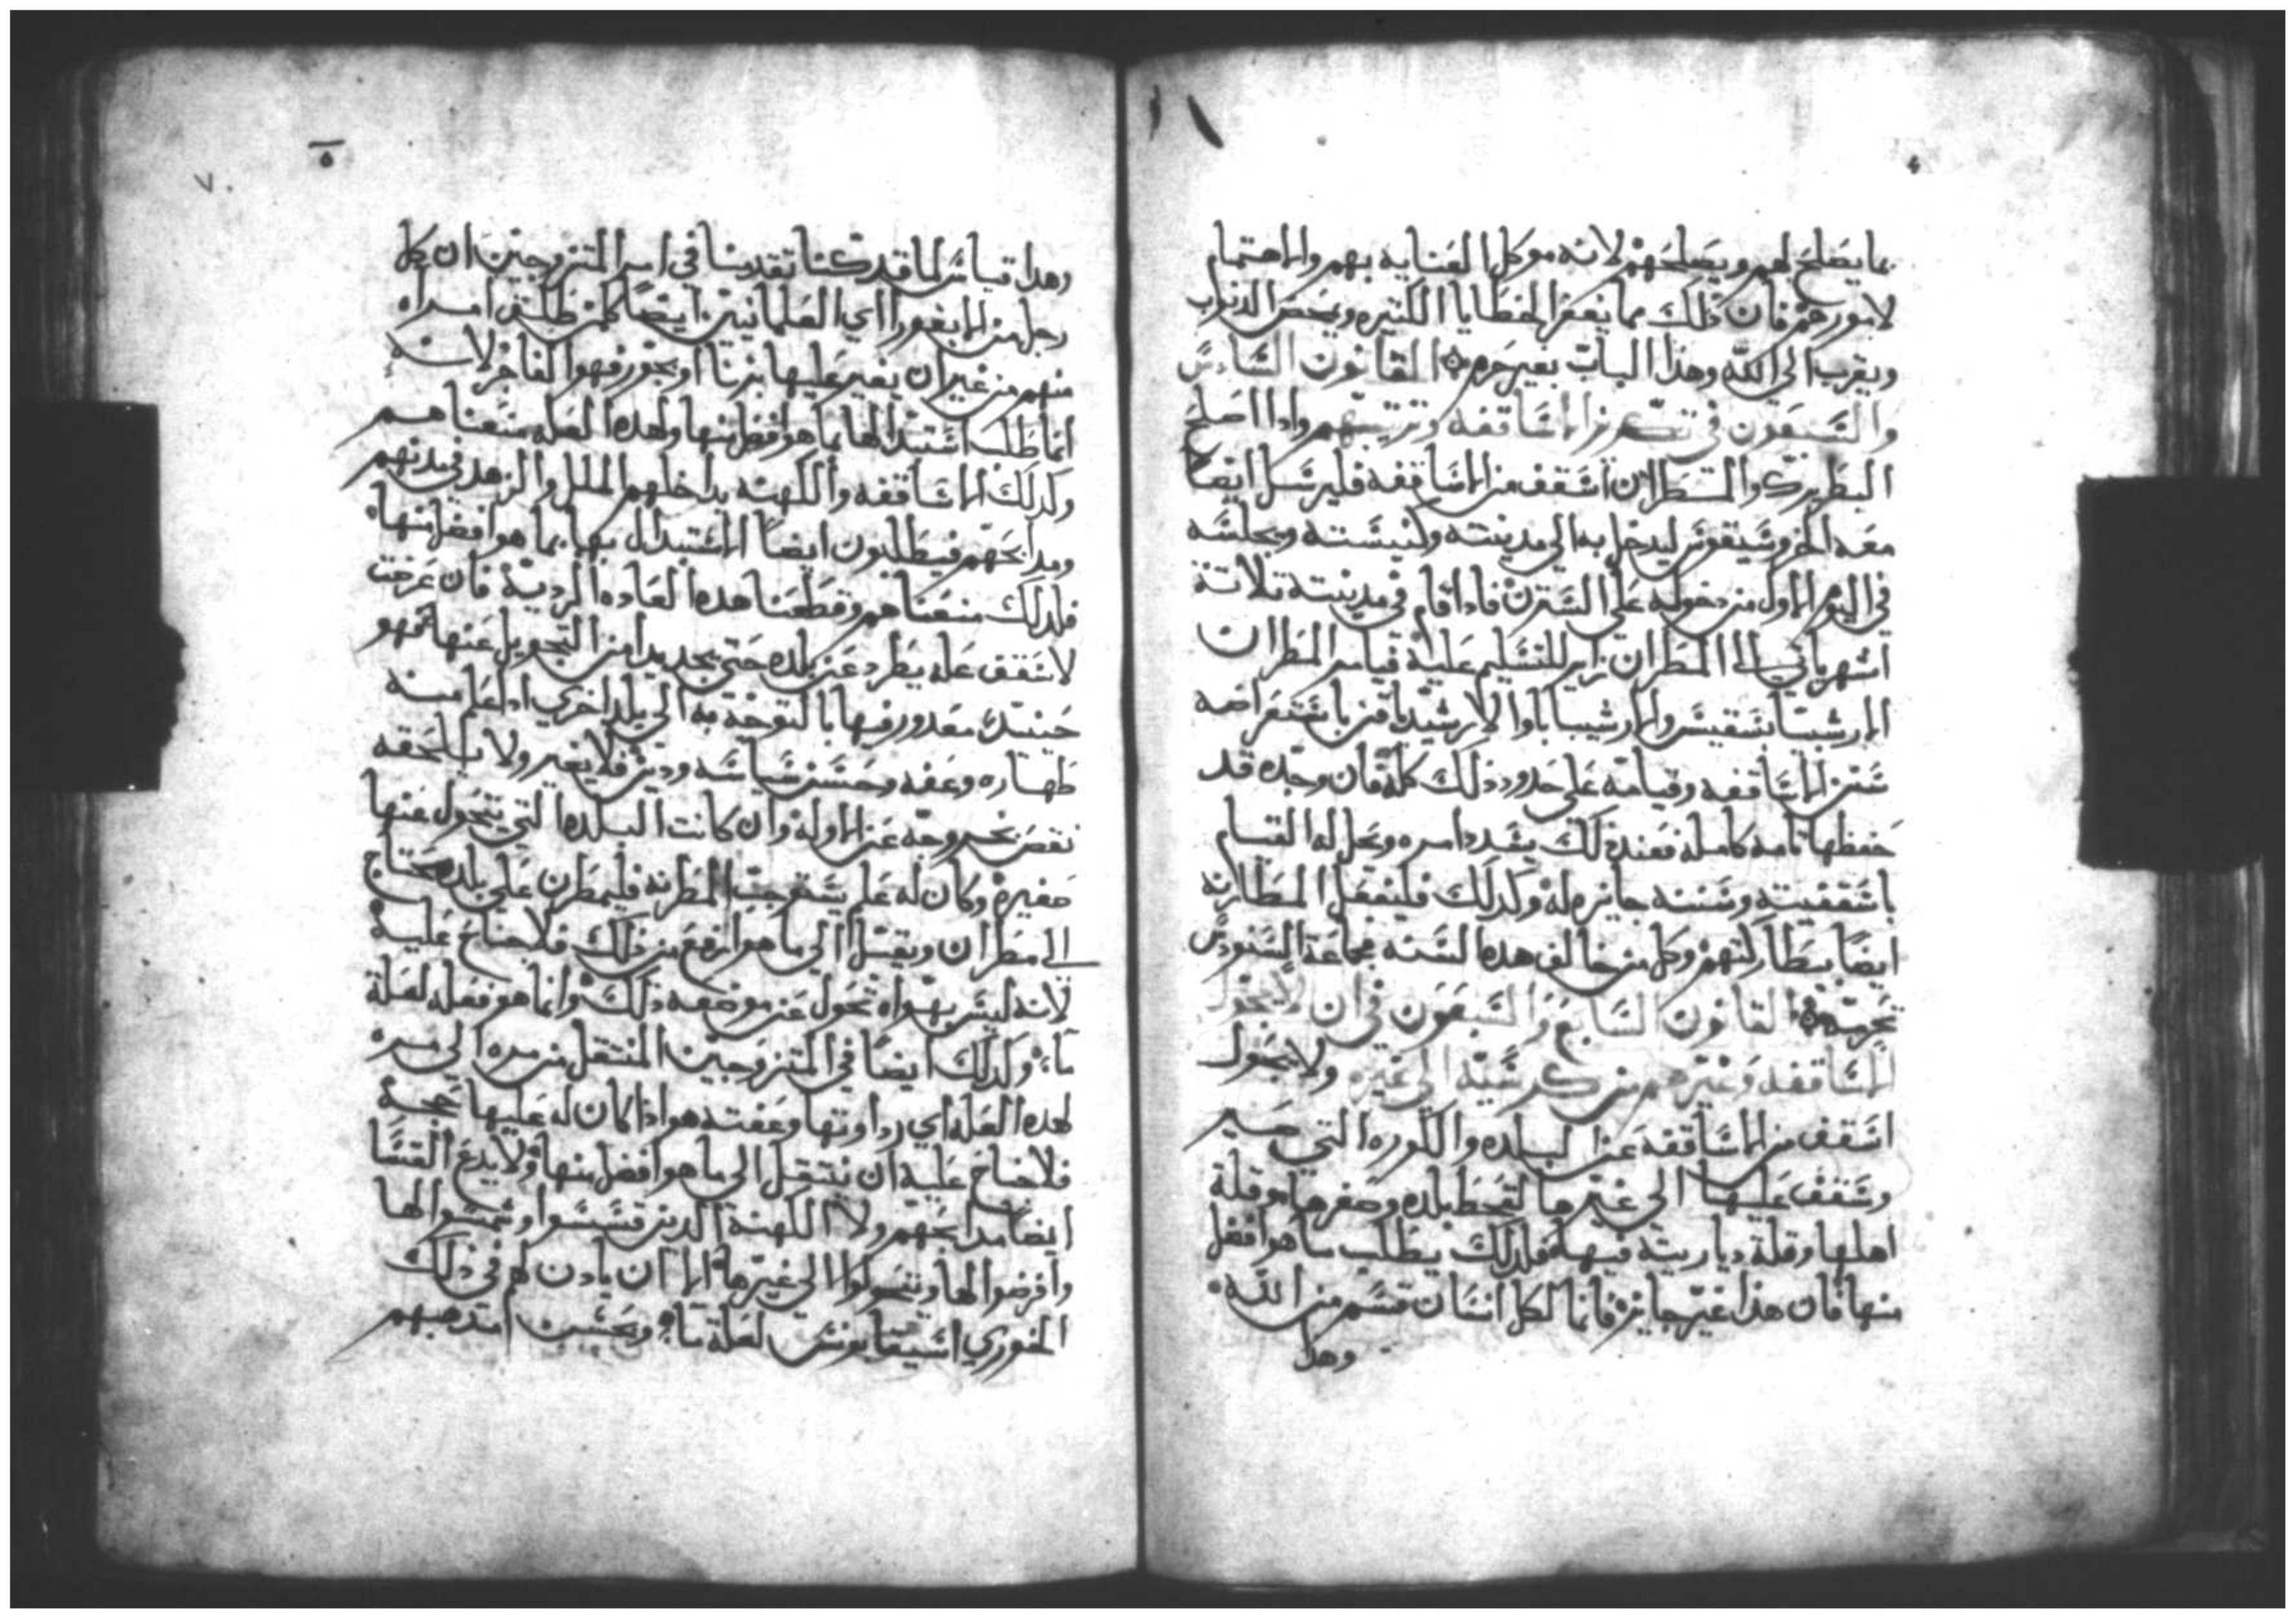 بما يصلح لهم ويصلحهم لانه موكل العنايه بهم والاهتمام
لامورهم فان ذلك مما يغفر الخطايا الكتيره ويمحص الدنوب
ويقرب الى الله وهذا الباب بغير حرم القانون السادس
والسبعون في تكريز الاساقفه وترتيبهم وادا اصلح
البطريرك والمطران اسقف من الاساقفه فليرسل ايضا
معه الخروسيقوس ليدخل به الى مدينته وكنيسته ويجلسه
في اليوم الاول من دخوله على السترن فاذا اقام في مدينته تلاتة
اشهر ياتي الى المطران زاير للتسليم عليه فيامر المطران
باستعراضه
سنن الاساقفه وقيامه على حدود ذلك كله فان وجده قد
حفظها تامه كامله فعند ذلك يشدد امره ويحل له القسام
باسقفيته وسننه جايزه له وكدلك فليفعل المطارنه
ايضا ببطاركتهم وكل من خالف هده السنه فجماعة السنودس
تحرمه القانون السابع والسبعون في ان لا يتحول
الاساقفه وغيرهم من كرسيه الى غيره ولا يتحول
اسقف من الاساقفه عن البلده والكوره التي صير
وسقف عليها الى غيرها لقحط بلده وصغرها وقلة
اهلها وقلة دياريته فيها فلدلك يطلب ما هو افضل
منها فان هذا غير جايز فانما لكل انسان قسم من الله
وهدا
٥
٧
وهدا قياس لما قد كنا تقدمنا في امر المتزوجين ان كل
رجل من اي العلمانيين ايضا طلق امراه
منهم من غير ان يغير عليها بزنا او بجور فهو الفاجر لانه
انما طلب استبدالها بما هو افضل منها ولهده العله منعناهم
وكدلك الاساقفه والكهنه يداخلهم الملل والزهد في مدنهم
ومدابحهم فيطلبون ايضا الاستبدال بها بما هو افضل منها
فلدلك منعناهم وقطعنا هده العاده الرديه فان عرضت
لاسقف عله يطرد عن بلده حتى يجد بدا من التحويل عنها فهو
حينيد معدور فيها بالتوجه به الى بلد اخري ادا علم منه
طهاره وعفه وحسن سياسه ودين فلا يغير ولا يلحقه
نقص بخروجه عن الاوله وان كانت البلده التي يتحول عنها
صغيره وكان له علم يستوجب المطرنه فليمطرن على بلده يحتاج
الى مطران وينتقل الى ما هو ارفع من ذلك فلا جناح عليه
لانه ليس بهواه تحول عن موضعه ذلك وانما هو فعله لعلة
ما وكدلك ايضا في المتزوجين المنتقل من مره الى مره
لهده العله اي رداوتها وعفته هو اذا كان له عليها حجه
فلا جناح عليه ان ينتقل الى ما هو افضل منها ولا يدع القسا
ايضا مدابحهم ولا الكهنة الدين قسسوا وشمسوا لها
وافرضوا لها ويتحولوا الى غيرها الا ان يادن لهم في ذلك
الخوري لعلة ما